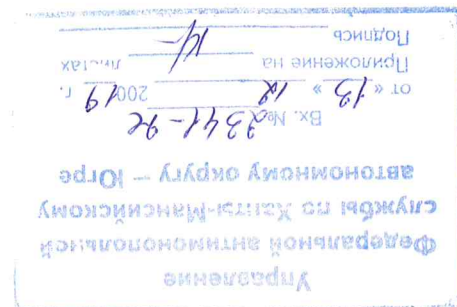 Управление
Федеральной антимонопольной
службы по Ханты-Мансийскому
автономному округу – Югре
Вх. №
от « 13 » 12 200 19 г.
Приложение на листах
Подпись